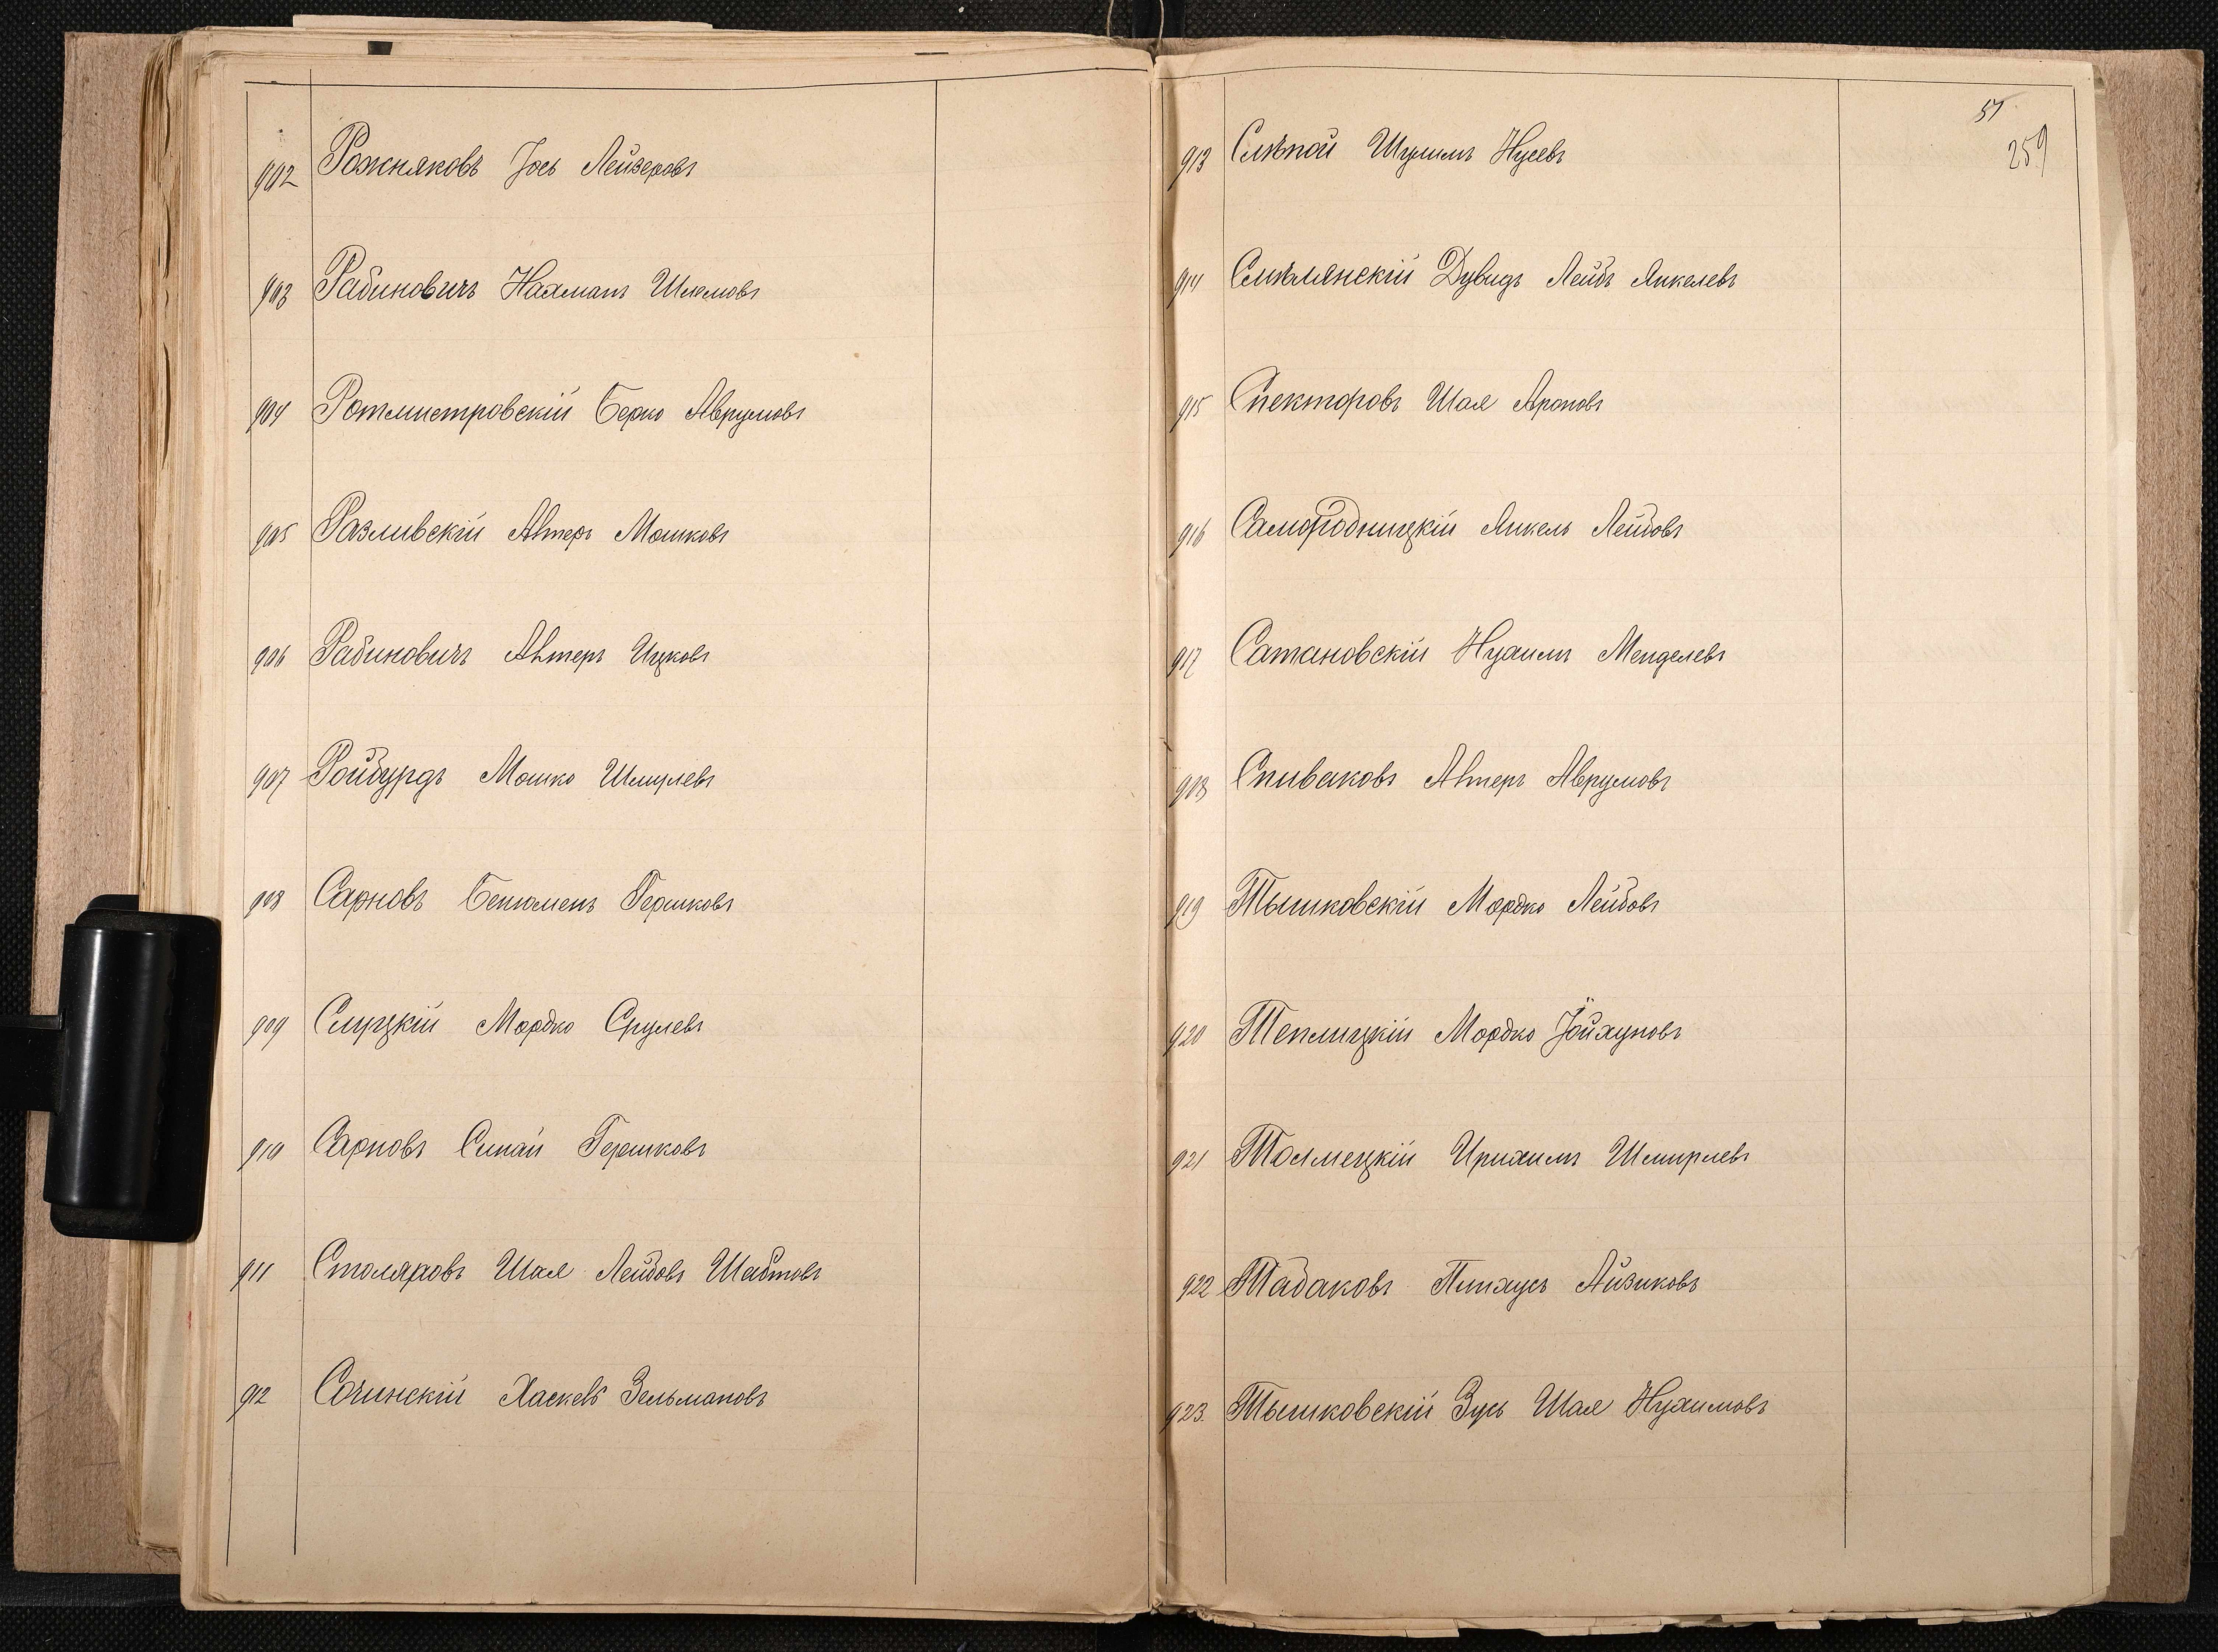 902 Рожняковъ Іось Лейзеровъ
903 Рабиновичъ Нахманъ Шлемовъ
904 Ротмистровскій Берко Аврумовъ
905 Разливскій Автеръ Мошковъ
906 Рабиновичъ Автеръ Ицковъ
907 Ройбурдъ Мошко Шмулевъ
908 Сарновъ Бенюменъ Гершковъ
909 Слуцкій Мордко Срулевъ
910 Сарновъ Синай Гершковъ
911 Столяровъ Шая Лейбовъ Шабтовъ
912 Сочинскій Хаскевъ Зельмановъ
51
259
913 Слѣпой Шулимъ Нусевъ
914 Смѣлянскій Дувидъ Лейбъ Янкелевъ
915 Спекторовъ Шая Ароновъ
916 Самородницкій Янкель Лейбовъ
917 Сатановскій Нухимъ Менделевъ
918 Сливаковъ Автеръ Аврумовъ
919 Тышковскій Мордко Лейбовъ
920 Теплицкій Мордко Іойхуновъ
921 Толмецкій Ирихимъ Шмирлевъ
922 Табаковъ Пинхусъ Айзиковъ
923. Тышковскій Зусь Шая Нухимовъ